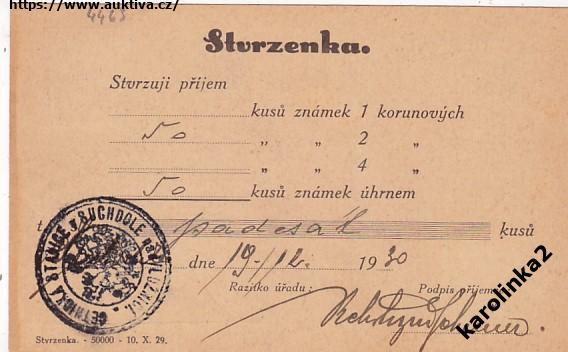 https://www.auktiva.cz/
4465
Stvrzenka.
Stvrzuji příjem
kusů známek 1 korunových
50 „ „ 2 „
„ „ 4 „
50 kusů známek úhrnem
t padesát kusů
dne 19./12. 1930
Razítko úřadu: Podpis příjem
ČETNICKÁ STANICE V SUCHDOLE NAD LUŽNICÍ.
Stvrzenka. - 50000 - 10. X. 29.
karolinka2